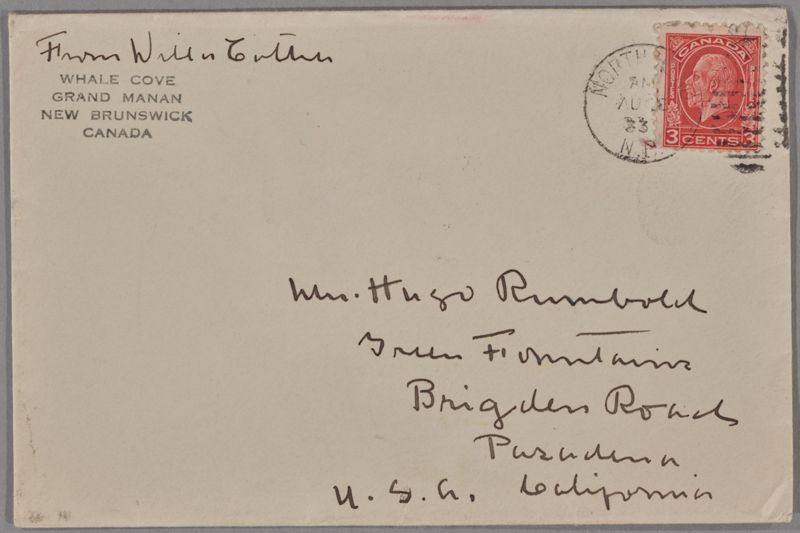 From Willa Cather
WHALE COVE
GRAND MANAN
NEW BRUNSWICK
CANADA
NORTH
AM
AU
33
N.
CANADA
3 CENTS 3
Mr. Hugo Rumbold
Green Fountains
Brigden Road
Pasadena
U.S.A. California